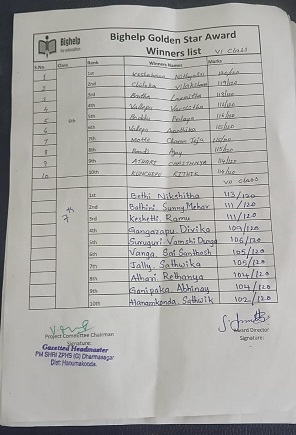 Bighelp
for education
Bighelp Golden Star Award
Winners list VI Class
S.No. Class Rank Winners Names Marks
1 1st 120/120
2 2nd Chilaka 119/120
3 3rd 118/120
4 4th Vallepu Varshitha 116/120
5 6th 5th 116/120
6 6th Vallepu 115/120
7 7th Motte Charan Teja
8 8th Ajay 115/120
9 9th ATHARI CHAITHNYA 114/120
10 10th RITHIK 114/120
VII CLASS
7th 1st Bethi Nikshitha 113/120
2nd Balhini Sunny Mehar 111/120
3rd Keshetti Ramu 111/120
4th Gangarapu Divika 109/120
5th Suruguri Vamshi Durga 106/120
6th Vanga Sai Santhosh 105/120
7th Jally Sathwika 105/120
8th Athari Rethanya 104/120
9th Ganipaka Abhinay 104/120
10th Hanamkonda Sathwik 102/120
Project Committee Chairman
Signature:
Gazetted Headmaster
PM SHRI ZPHS (G) Dharmasagar
Dist: Hanumakonda.
Award Director
Signature: